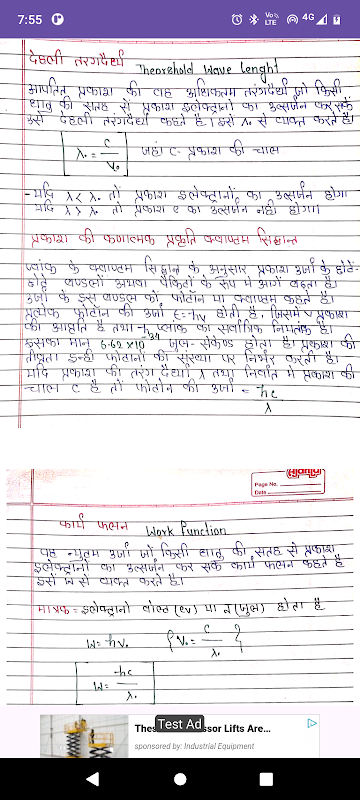 7:55
VoLTE 4G
देहली तरंगदैर्ध्य Theorshold Wave Lenght
आपतित प्रकाश की वह अधिकतम तरंगदैर्ध्य जो किसी
धातु की सतह से प्रकाश इलेक्ट्रानों का उत्सर्जन कर सके
उसे देहली तरंगदैर्ध्य कहते है। इसे λ₀ से व्यक्त करते है।
λ₀ = c/ν₀ जहां c- प्रकाश की चाल
-यदि λ < λ₀ तो प्रकाश इलेक्ट्रानों का उत्सर्जन होगा
यदि λ > λ₀ तो प्रकाश e का उत्सर्जन नही होगा।
प्रकाश की कणात्मक प्रकृति क्वाण्टम सिद्धान्त
प्लांक के क्वाण्टम सिद्धान्त के अनुसार प्रकाश ऊर्जा के छोटे-
छोटे बण्डलों अथवा पैकिटों के रूप में आगे बढ़ता है।
ऊर्जा के इस बण्डल को फोटॉन या क्वाण्टम कहते है।
प्रत्येक फोटॉन की ऊर्जा E=hν होती है, जिसमें ν प्रकाश
की आवृति है तथा h प्लांक का सर्वात्रिक नियतांक है।
इसका मान 6.62×10⁻³⁴ जूल-सेकेण्ड होता है। प्रकाश की
तीव्रता इन्ही फोटानों की संख्या पर निर्भर करती है।
यदि प्रकाश की तरंग दैर्ध्य λ तथा निर्वात में प्रकाश की
चाल c है तो फोटोन की ऊर्जा = hc/λ
Page No.
Date
कार्य फलन Work Function
वह न्यूतम ऊर्जा जो किसी धातु की सतह से प्रकाश
इलेक्ट्रानों का उत्सर्जन कर सके कार्य फलन कहते है
इसे W से व्यक्त करते है।
मात्रक = इलेक्ट्रानों वोल्ट (ev) या J (जूल) होता है
W = hν₀ { ν₀ = c/λ₀ }
W = hc/λ₀
Test Ad
Thes ssor Lifts Are...
sponsored by: Industrial Equipment